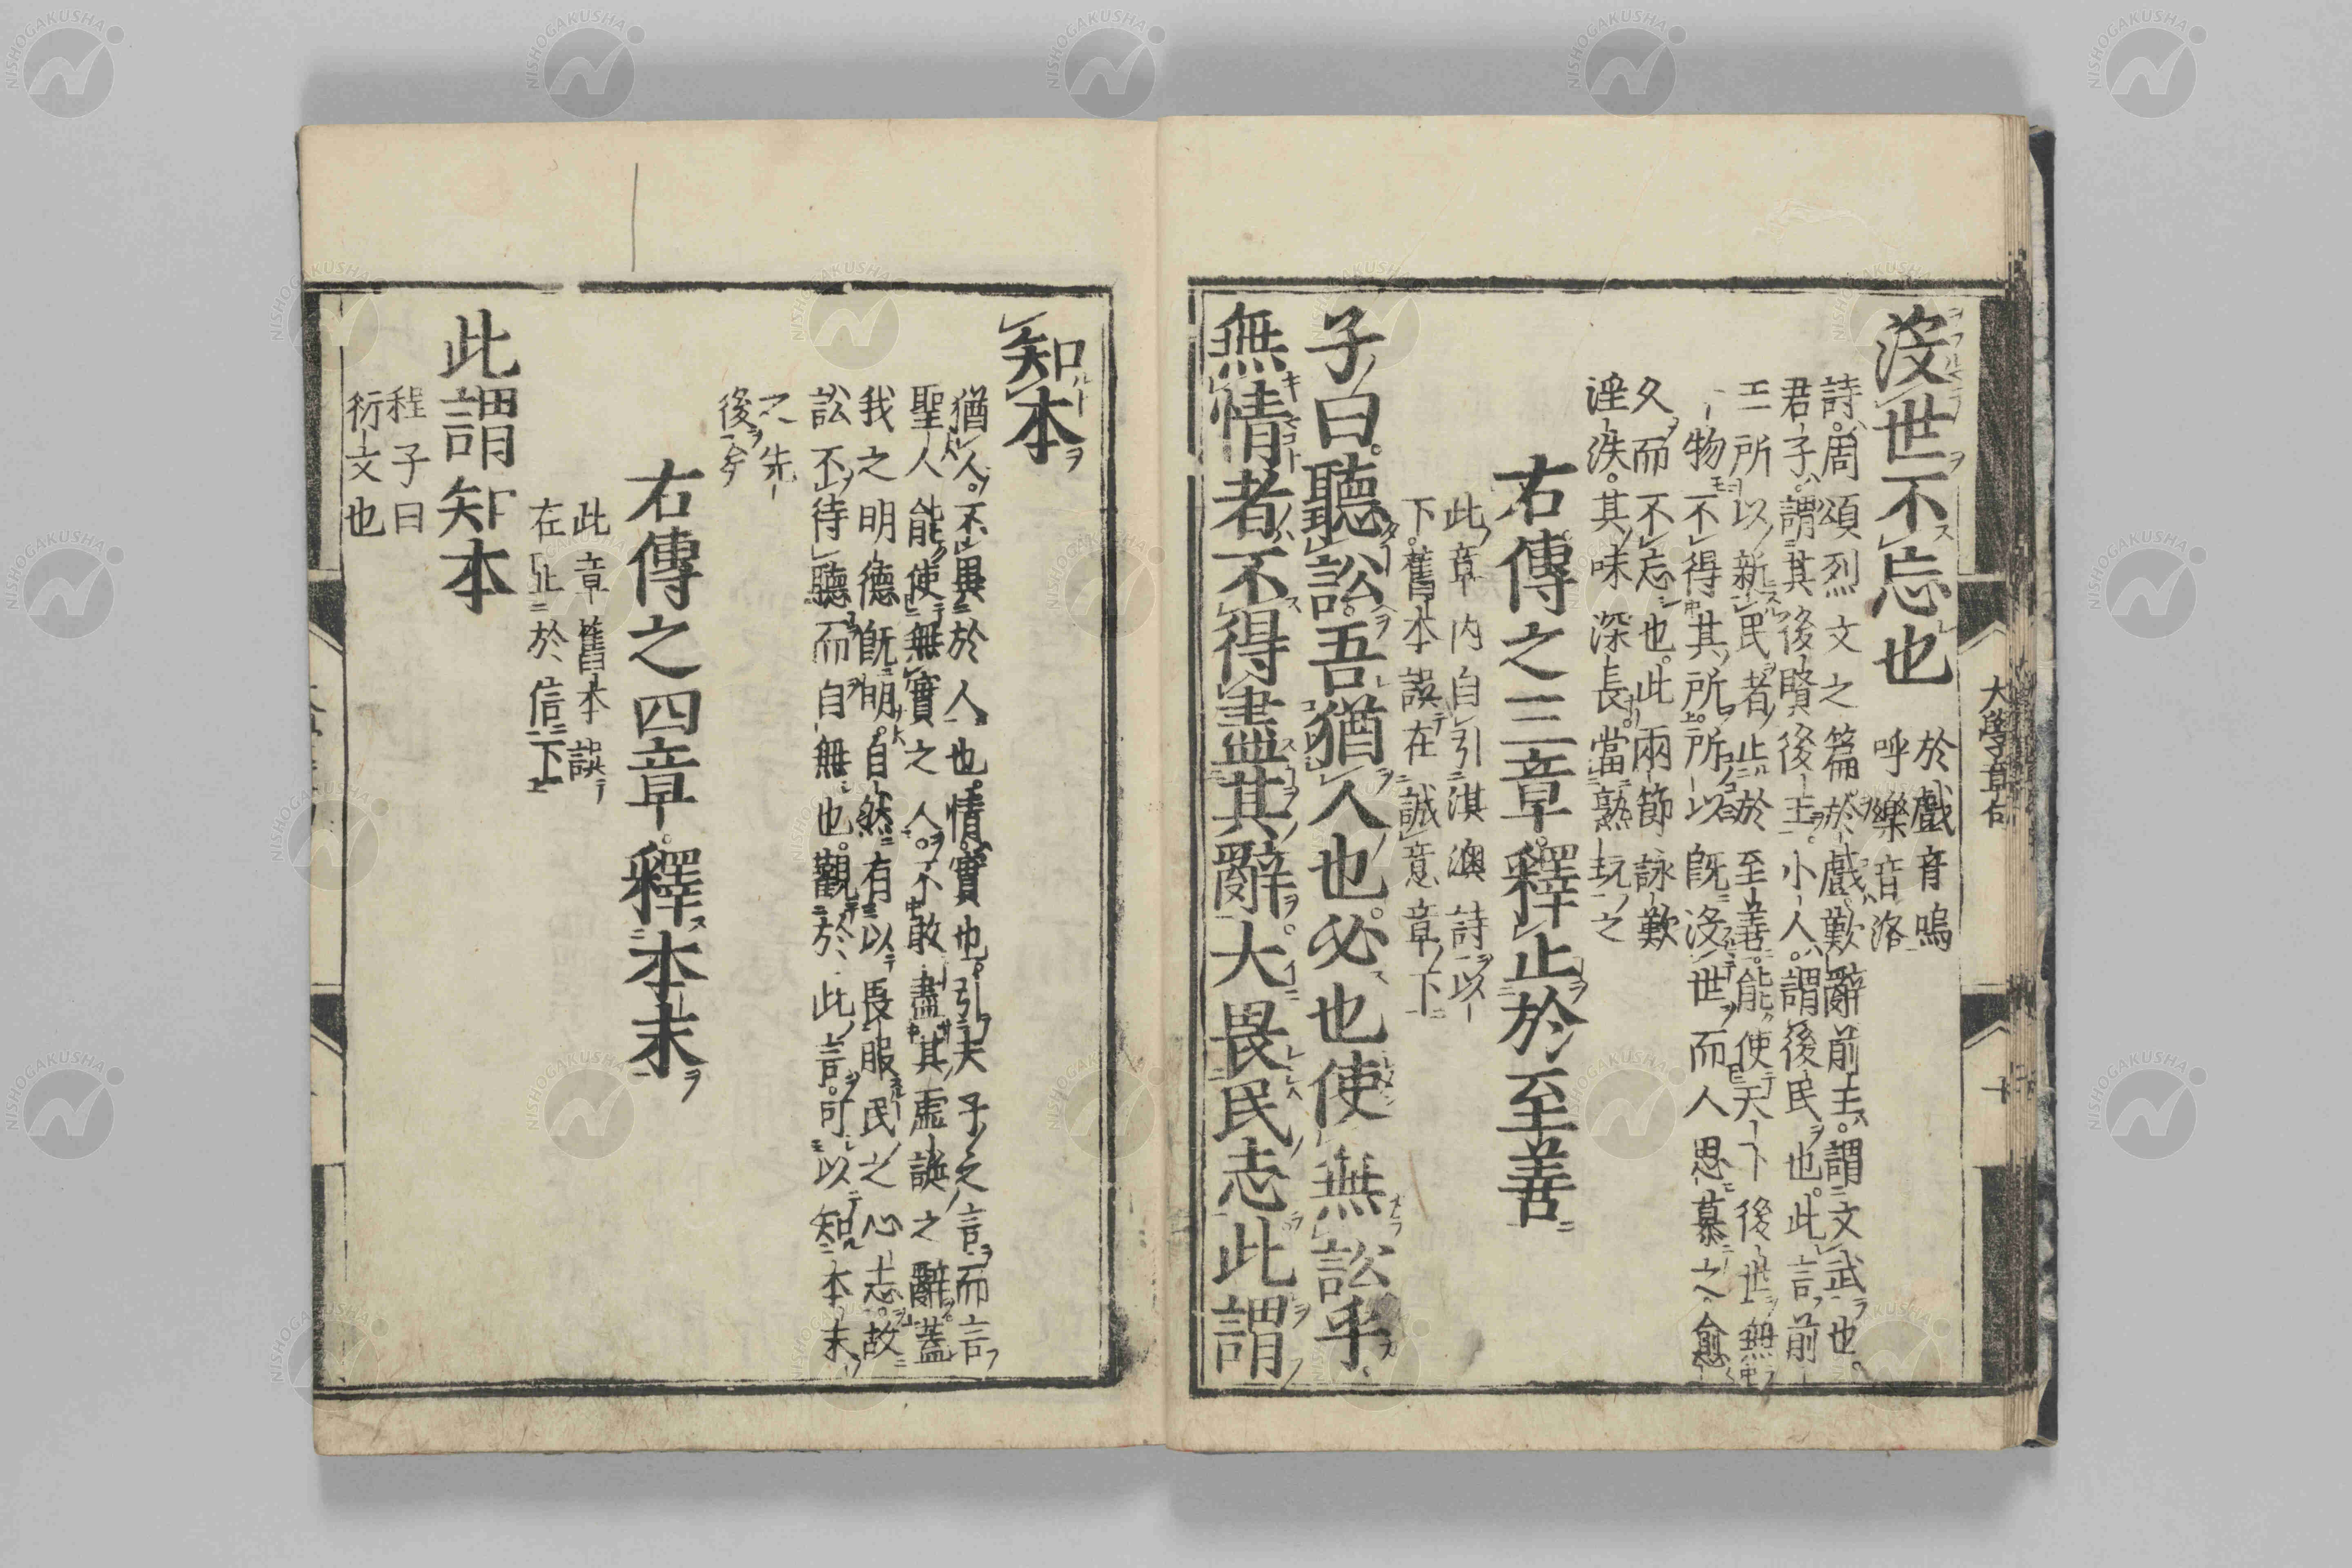 没世不忘也
於戲音嗚
呼樂音洛
詩周頌烈文之篇於戲歎辭前王謂文武也
君子謂其後賢後王小人謂後民也此言前
王所以新民者止於至善能使天下後世無
一物不得其所所以既没世而人思慕之愈
久而不忘也此兩節詠歎
淫泆其味深長當熟玩之
右傳之三章釋止於至善
此章内自引淇澳詩以
下舊本誤在誠意章下
子曰聽訟吾猶人也必也使無訟乎
無情者不得盡其辭大畏民志此謂
大學章句
十
知本
猶人不異於人也情實也引夫子之言而言
聖人能使無實之人不敢盡其虛誕之辭蓋
我之明德既明自然有以畏服民之心志故
訟不待聽而自無也觀於此言可以知本末
之先
後矣
右傳之四章釋本末
此章舊本誤
在止於信下
此謂知本
程子曰
衍文也